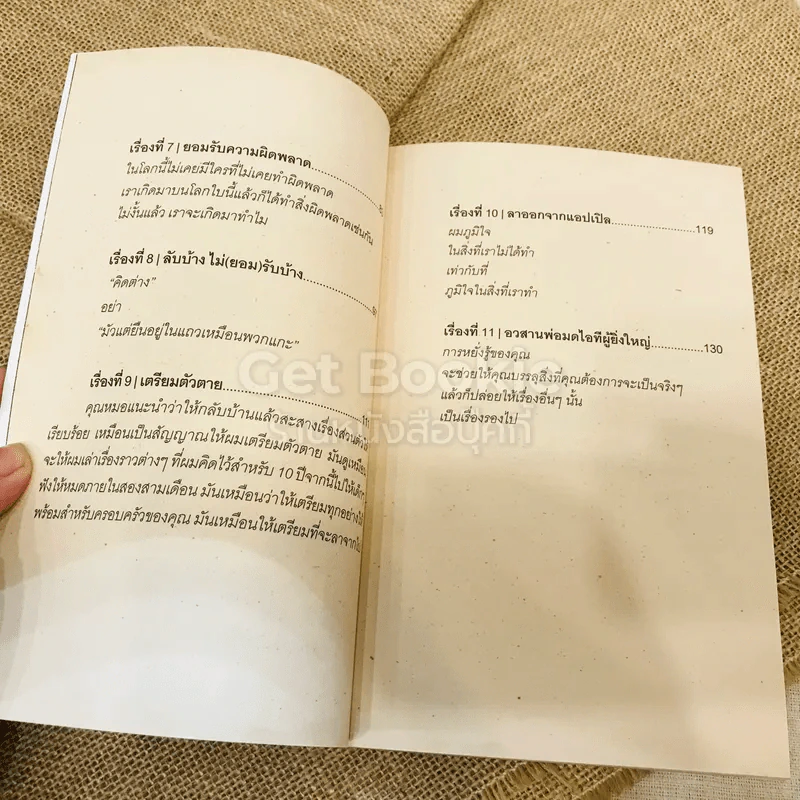 เรื่องที่ 7 | ยอมรับความผิดพลาด
ในโลกนี้ไม่เคยมีใครที่ไม่เคยทำผิดพลาด
เราเกิดมาบนโลกใบนี้แล้วก็ได้ทำสิ่งผิดพลาดเช่นกัน
ไม่งั้นแล้ว เราจะเกิดมาทำไม
เรื่องที่ 8 | ลับบ้าง ไม่(ยอม)รับบ้าง
"คิดต่าง"
อย่า
"มัวแต่ยืนอยู่ในแถวเหมือนพวกแกะ"
เรื่องที่ 9 | เตรียมตัวตาย
คุณหมอแนะนำว่าให้กลับบ้านแล้วสะสางเรื่องส่วนตัว
เรียบร้อย เหมือนเป็นสัญญาณให้ผมเตรียมตัวตาย มันดูเหมือน
จะให้ผมเล่าเรื่องราวต่างๆ ที่ผมคิดไว้สำหรับ 10 ปีจากนี้ไปให้เด็กๆ
ฟังให้หมดภายในสองสามเดือน มันเหมือนว่าให้เตรียมทุกอย่าง
พร้อมสำหรับครอบครัวของคุณ มันเหมือนให้เตรียมที่จะลาจาก
เรื่องที่ 10 | ลาออกจากแอปเปิล....................119
ผมภูมิใจ
ในสิ่งที่เราไม่ได้ทำ
เท่ากับที่
ภูมิใจในสิ่งที่เราทำ
เรื่องที่ 11 | อวสานพ่อมดไอทีผู้ยิ่งใหญ่.............130
การหยั่งรู้ของคุณ
จะช่วยให้คุณบรรลุสิ่งที่คุณต้องการจะเป็นจริงๆ
แล้วก็ปล่อยให้เรื่องอื่นๆ นั้น
เป็นเรื่องรองไป